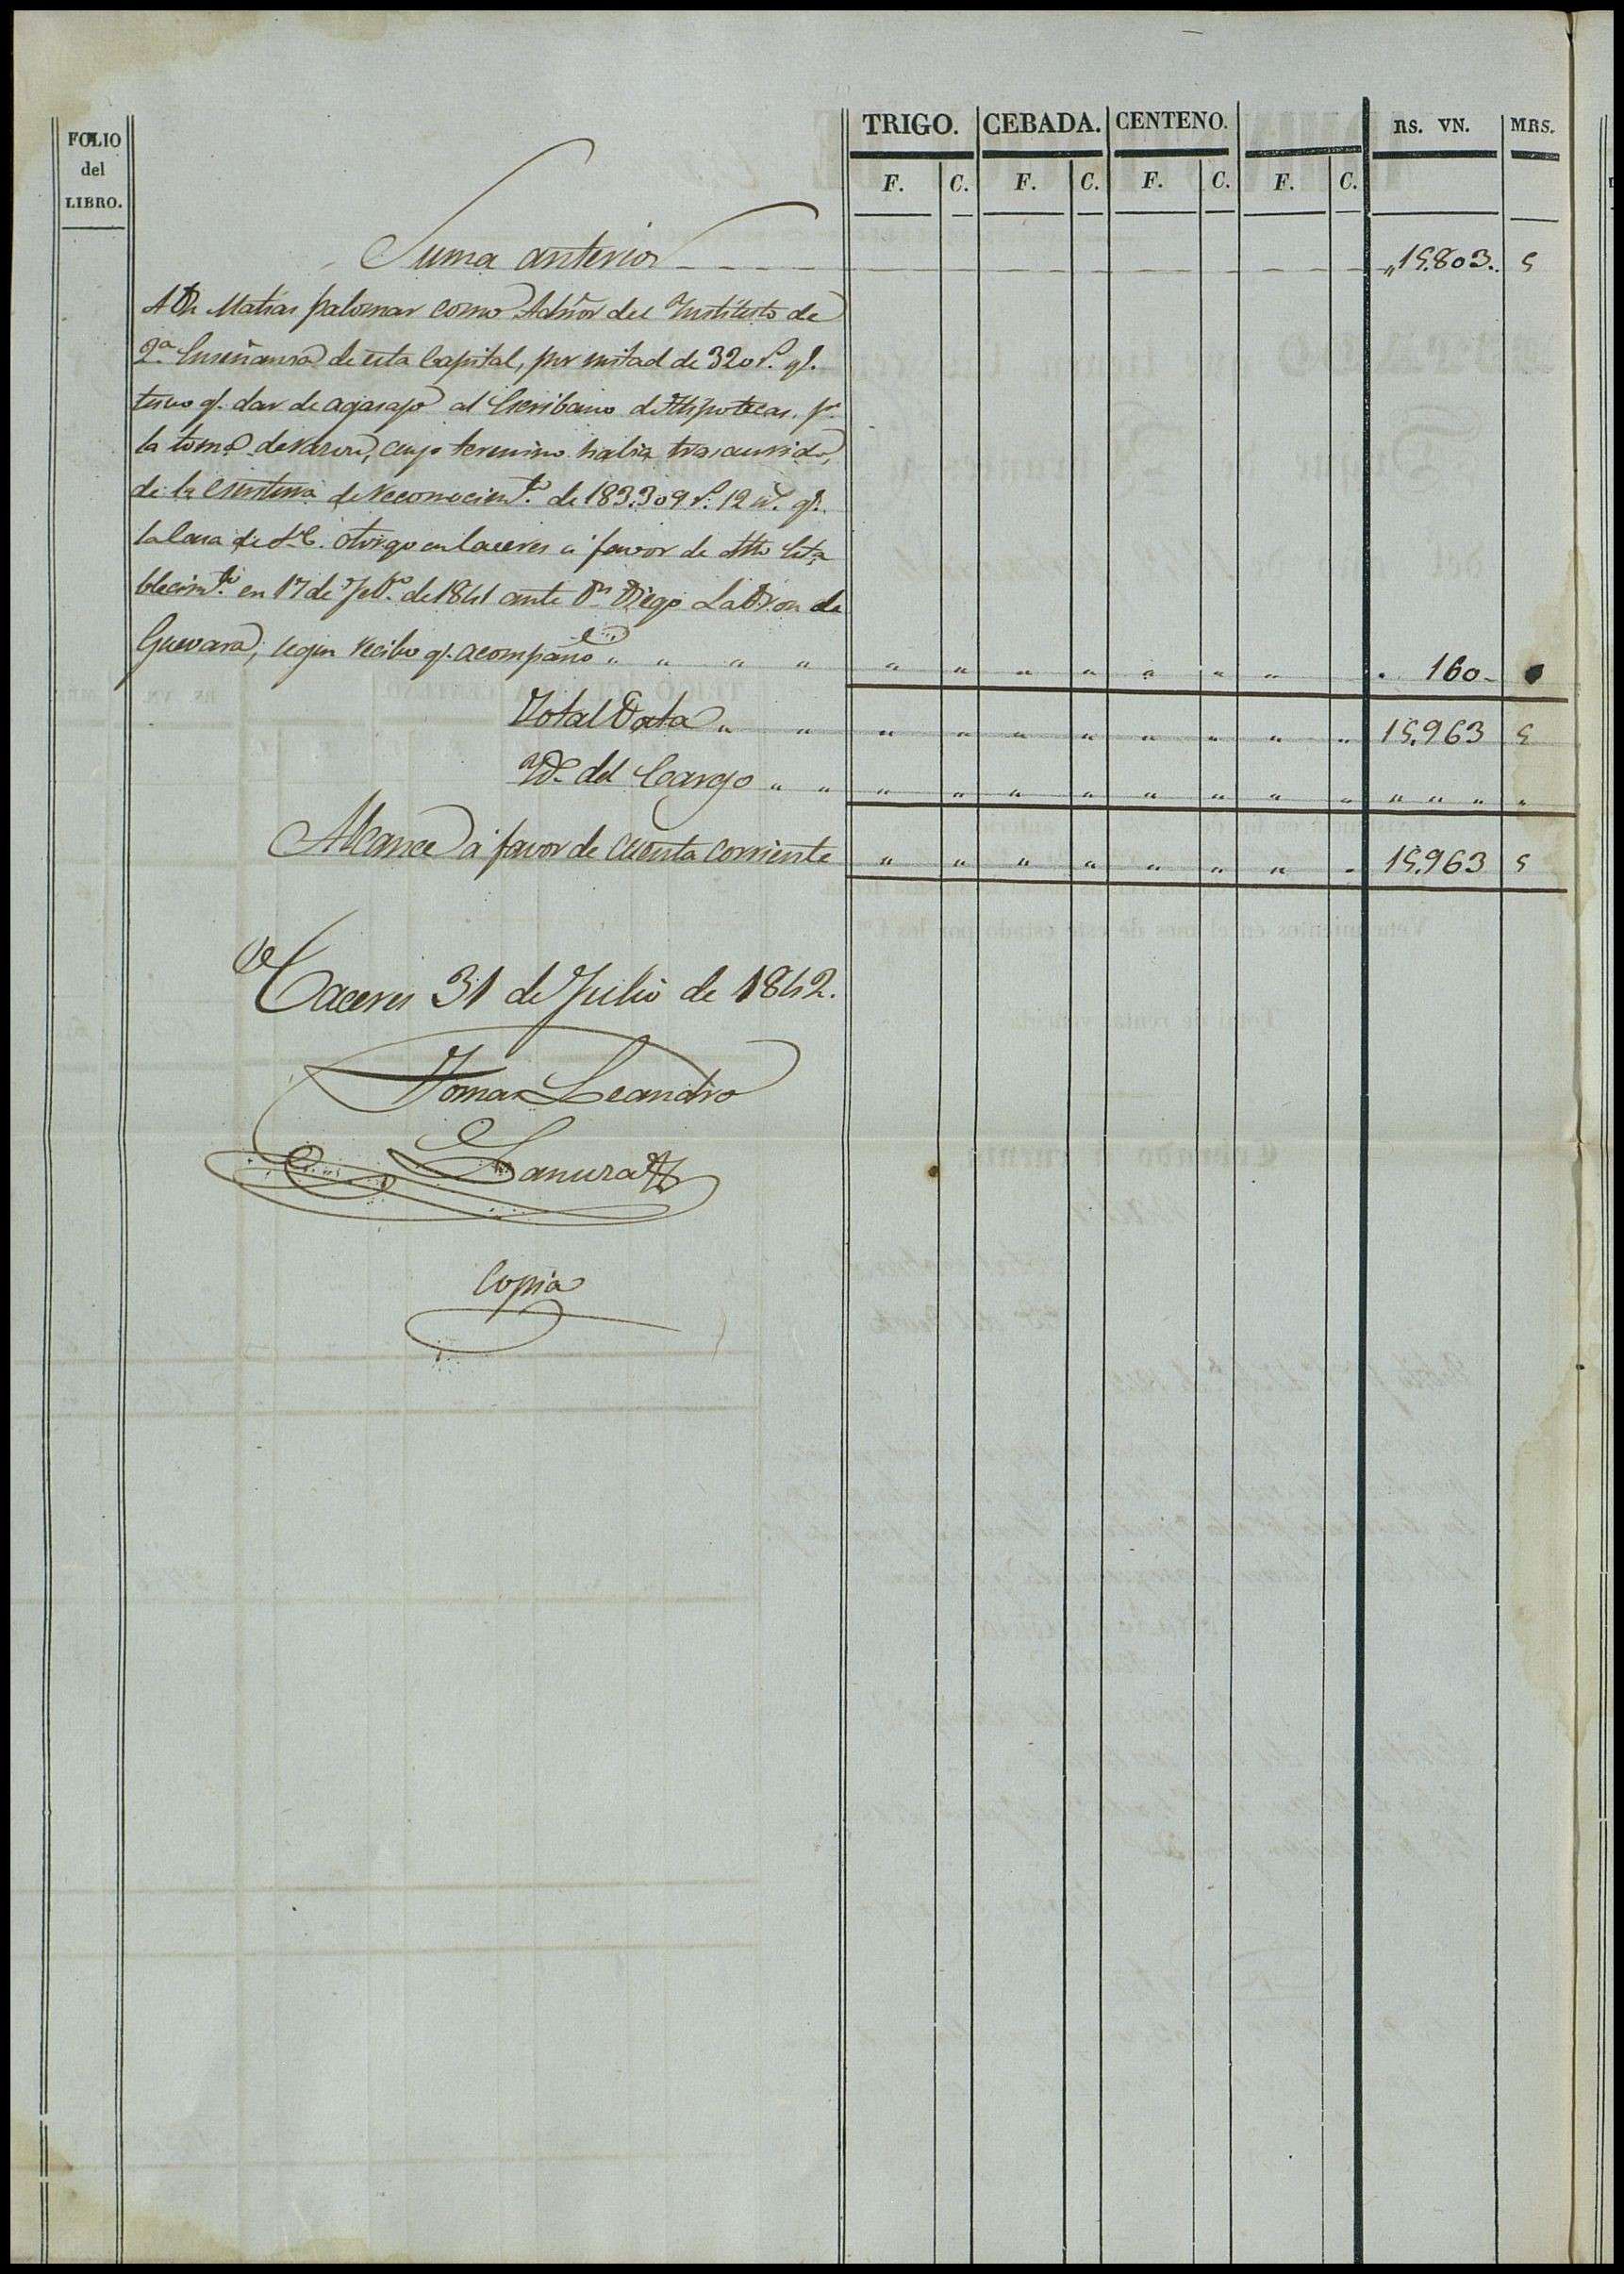 FOLIO
del
LIBRO.
TRIGO. CEBADA. CENTENO. RS. VN. MRS.
F. C. F. C. F. C. F. C.
Suma anterior 15.803. 5
A Dn Matias palomar como Admor del Instituto de
2ª Enseñansa de esta Capital, por mitad de 320 rs. q.
tuvo q. dar de agasajo al Escribano de Hipotecas, pr.
la toma de rason, cuyo termino habia trascurrido,
de la escritura de reconocimto. de 183.309 rs. 12 ms. q.
la Casa de S.E. otorgo en Caceres a favor de dho Esta
blecimto. en 17 de Feb.o de 1841 ante Dn Diego Ladron de
Guevara, segun recibo q. acompaño " " " " " " " " " " " 160
Total Data " " " " " " " " " " 15.963 5
Yd. del Cargo " " " " " " " " " " " " " "
Alcance a favor de cuenta corriente " " " " " " " " 15.963 5
Caceres 31 de Julio de 1842.
Tomas Leandro
Sanuraz
Copia